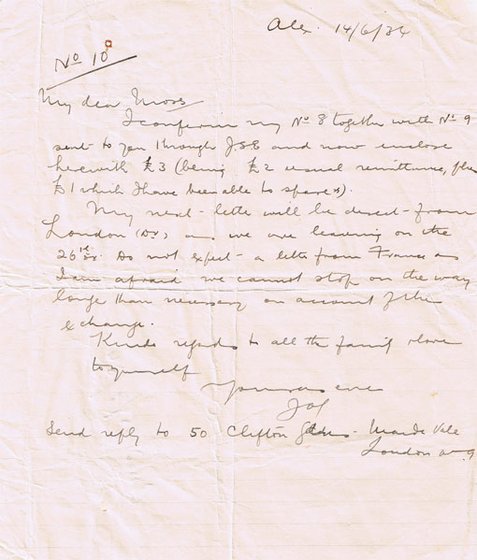 Alex. 14/6/34
No 10
My dear Moss
I confirm my No 8 together with No 9
sent to you through J.S.E and now enclose
herewith £3 (being £2 usual remittance, plus
£1 which I have been able to spare).
My next letter will be direct from
London as we are leaving on the
26th. Do not expect a letter from France as
I am afraid we cannot stop on the way
longer than necessary on account of the
exchange.
Kind regards to all the family & love
to yourself
Yours as ever
Send reply to 50 Clifton Gdns. Maida Vale
London W 9